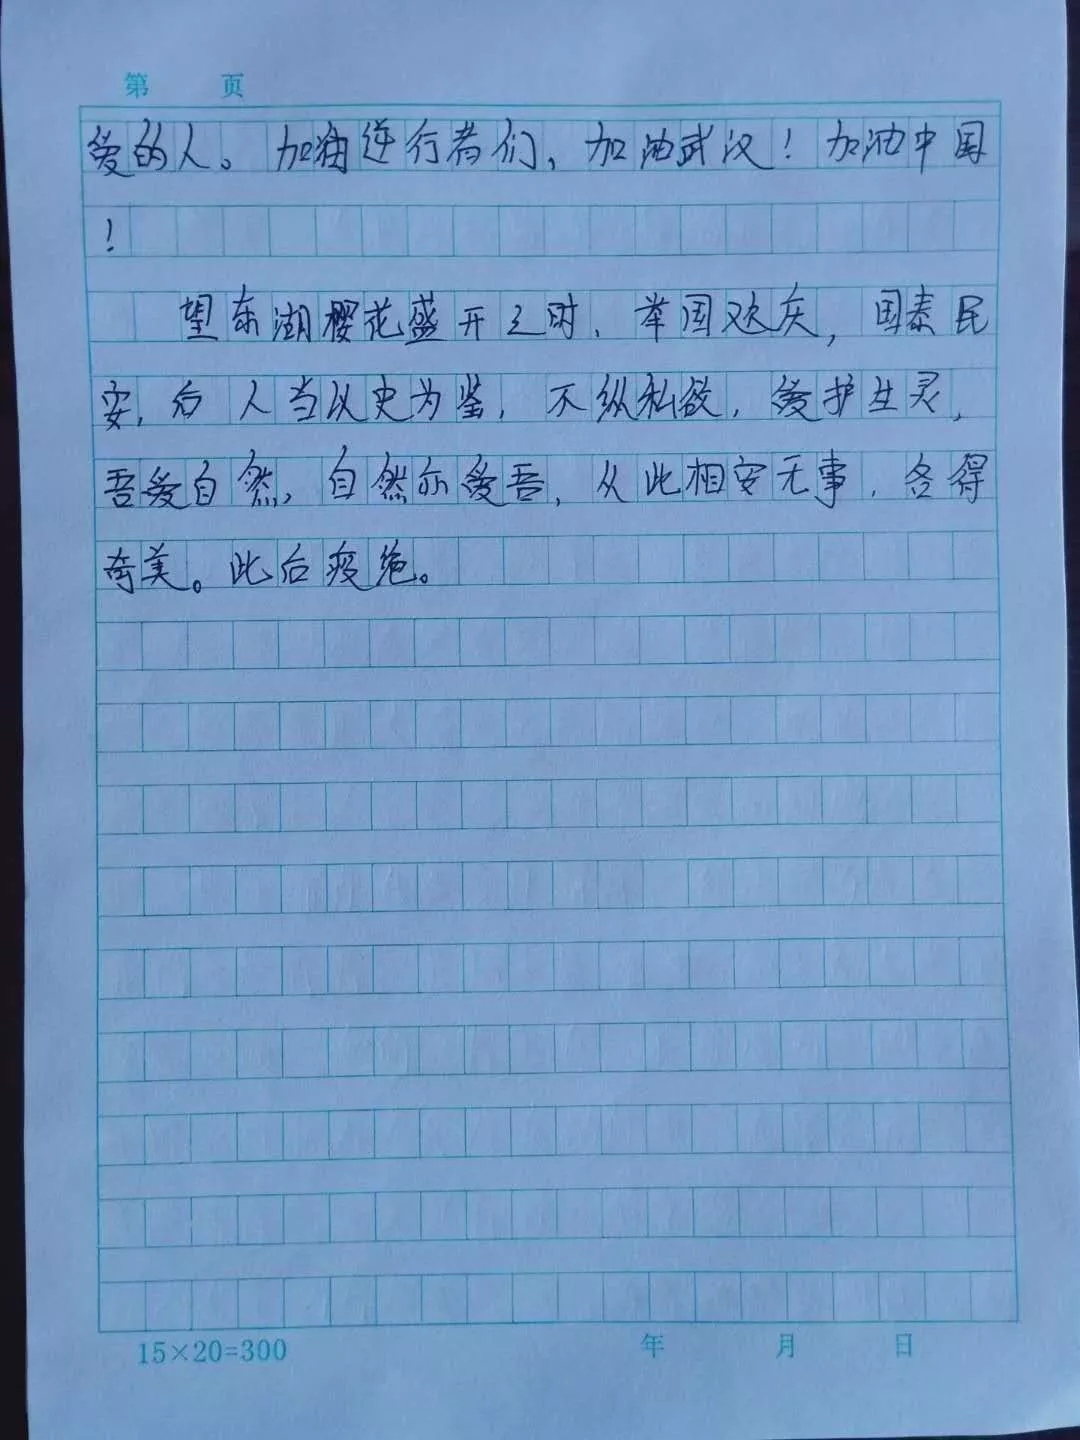 第 页
爱的人。加油逆行者们、加油武汉！加油中国
！
望东湖樱花盛开之时、举国欢庆，国泰民
安，后人当以史为鉴，不纵私欲，爱护生灵，
吾爱自然，自然亦爱吾，从此相安无事，各得
奇美。此后疫绝。
15×20=300 年 月 日